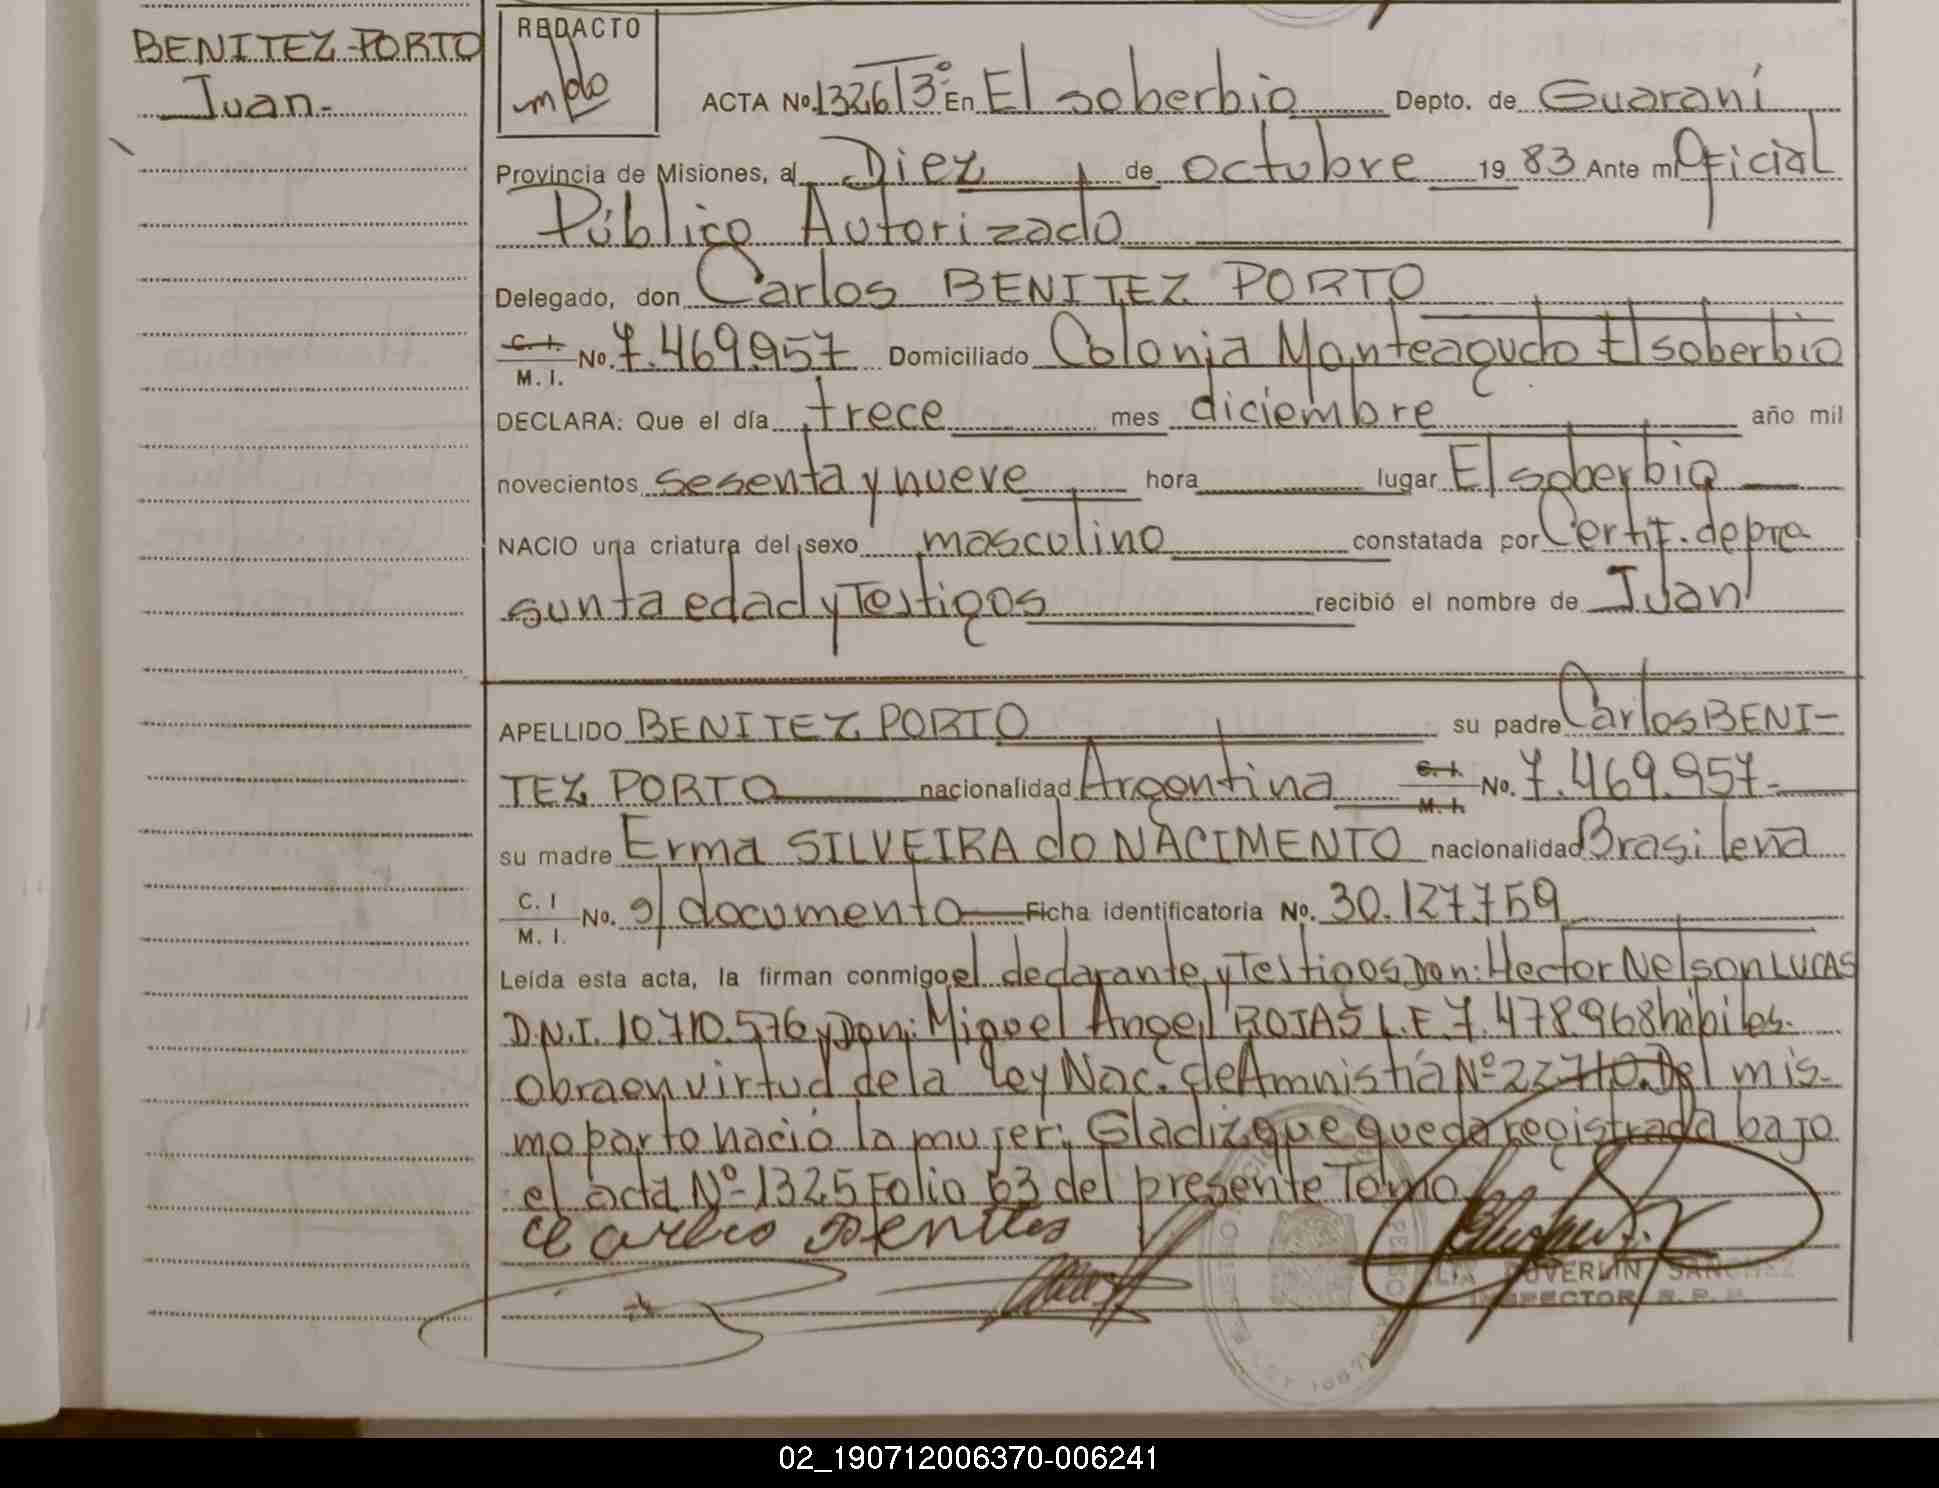 BENITEZ PORTO
Juan-
REDACTO
ACTA Nº 1326 T3º En El soberbio Depto. de Guaraní
Provincia de Misiones, a Diez de octubre 1983 Ante mí Oficial
Público Autorizado
Delegado, don Carlos BENITEZ PORTO
C. I. M. I. No. 7.469.957 Domiciliado Colonia Monteagudo El soberbio
DECLARA: Que el día trece mes diciembre año mil
novecientos sesenta y nueve hora lugar El soberbio
NACIO una criatura del sexo masculino constatada por Certif. de pre
sunta edad y Testigos recibió el nombre de Juan
APELLIDO BENITEZ PORTO su padre Carlos BENI-
TEZ PORTO nacionalidad Argentina C. I. M. I. No. 7.469.957-
su madre Erma SILVEIRA do NACIMENTO nacionalidad Brasileña
C. I M. I. No. s/documento Ficha identificatoria No. 30.127.759
Leída esta acta, la firman conmigo el declarante y Testigos Don: Hector Nelson LUCAS
D.N.I. 10.710.576 y Don: Miguel Angel ROJAS L.E 7.478968 hábiles.
Obra en virtud de la Ley Nac. de Amnistía Nº 22710. Del mis-
mo parto nació la mujer: Gladiz que queda registrada bajo
el acta Nº 1325 Folio 63 del presente Tomo
Carlos Benites
SANCHEZ
INSPECTOR R. P. P.
02_190712006370-006241